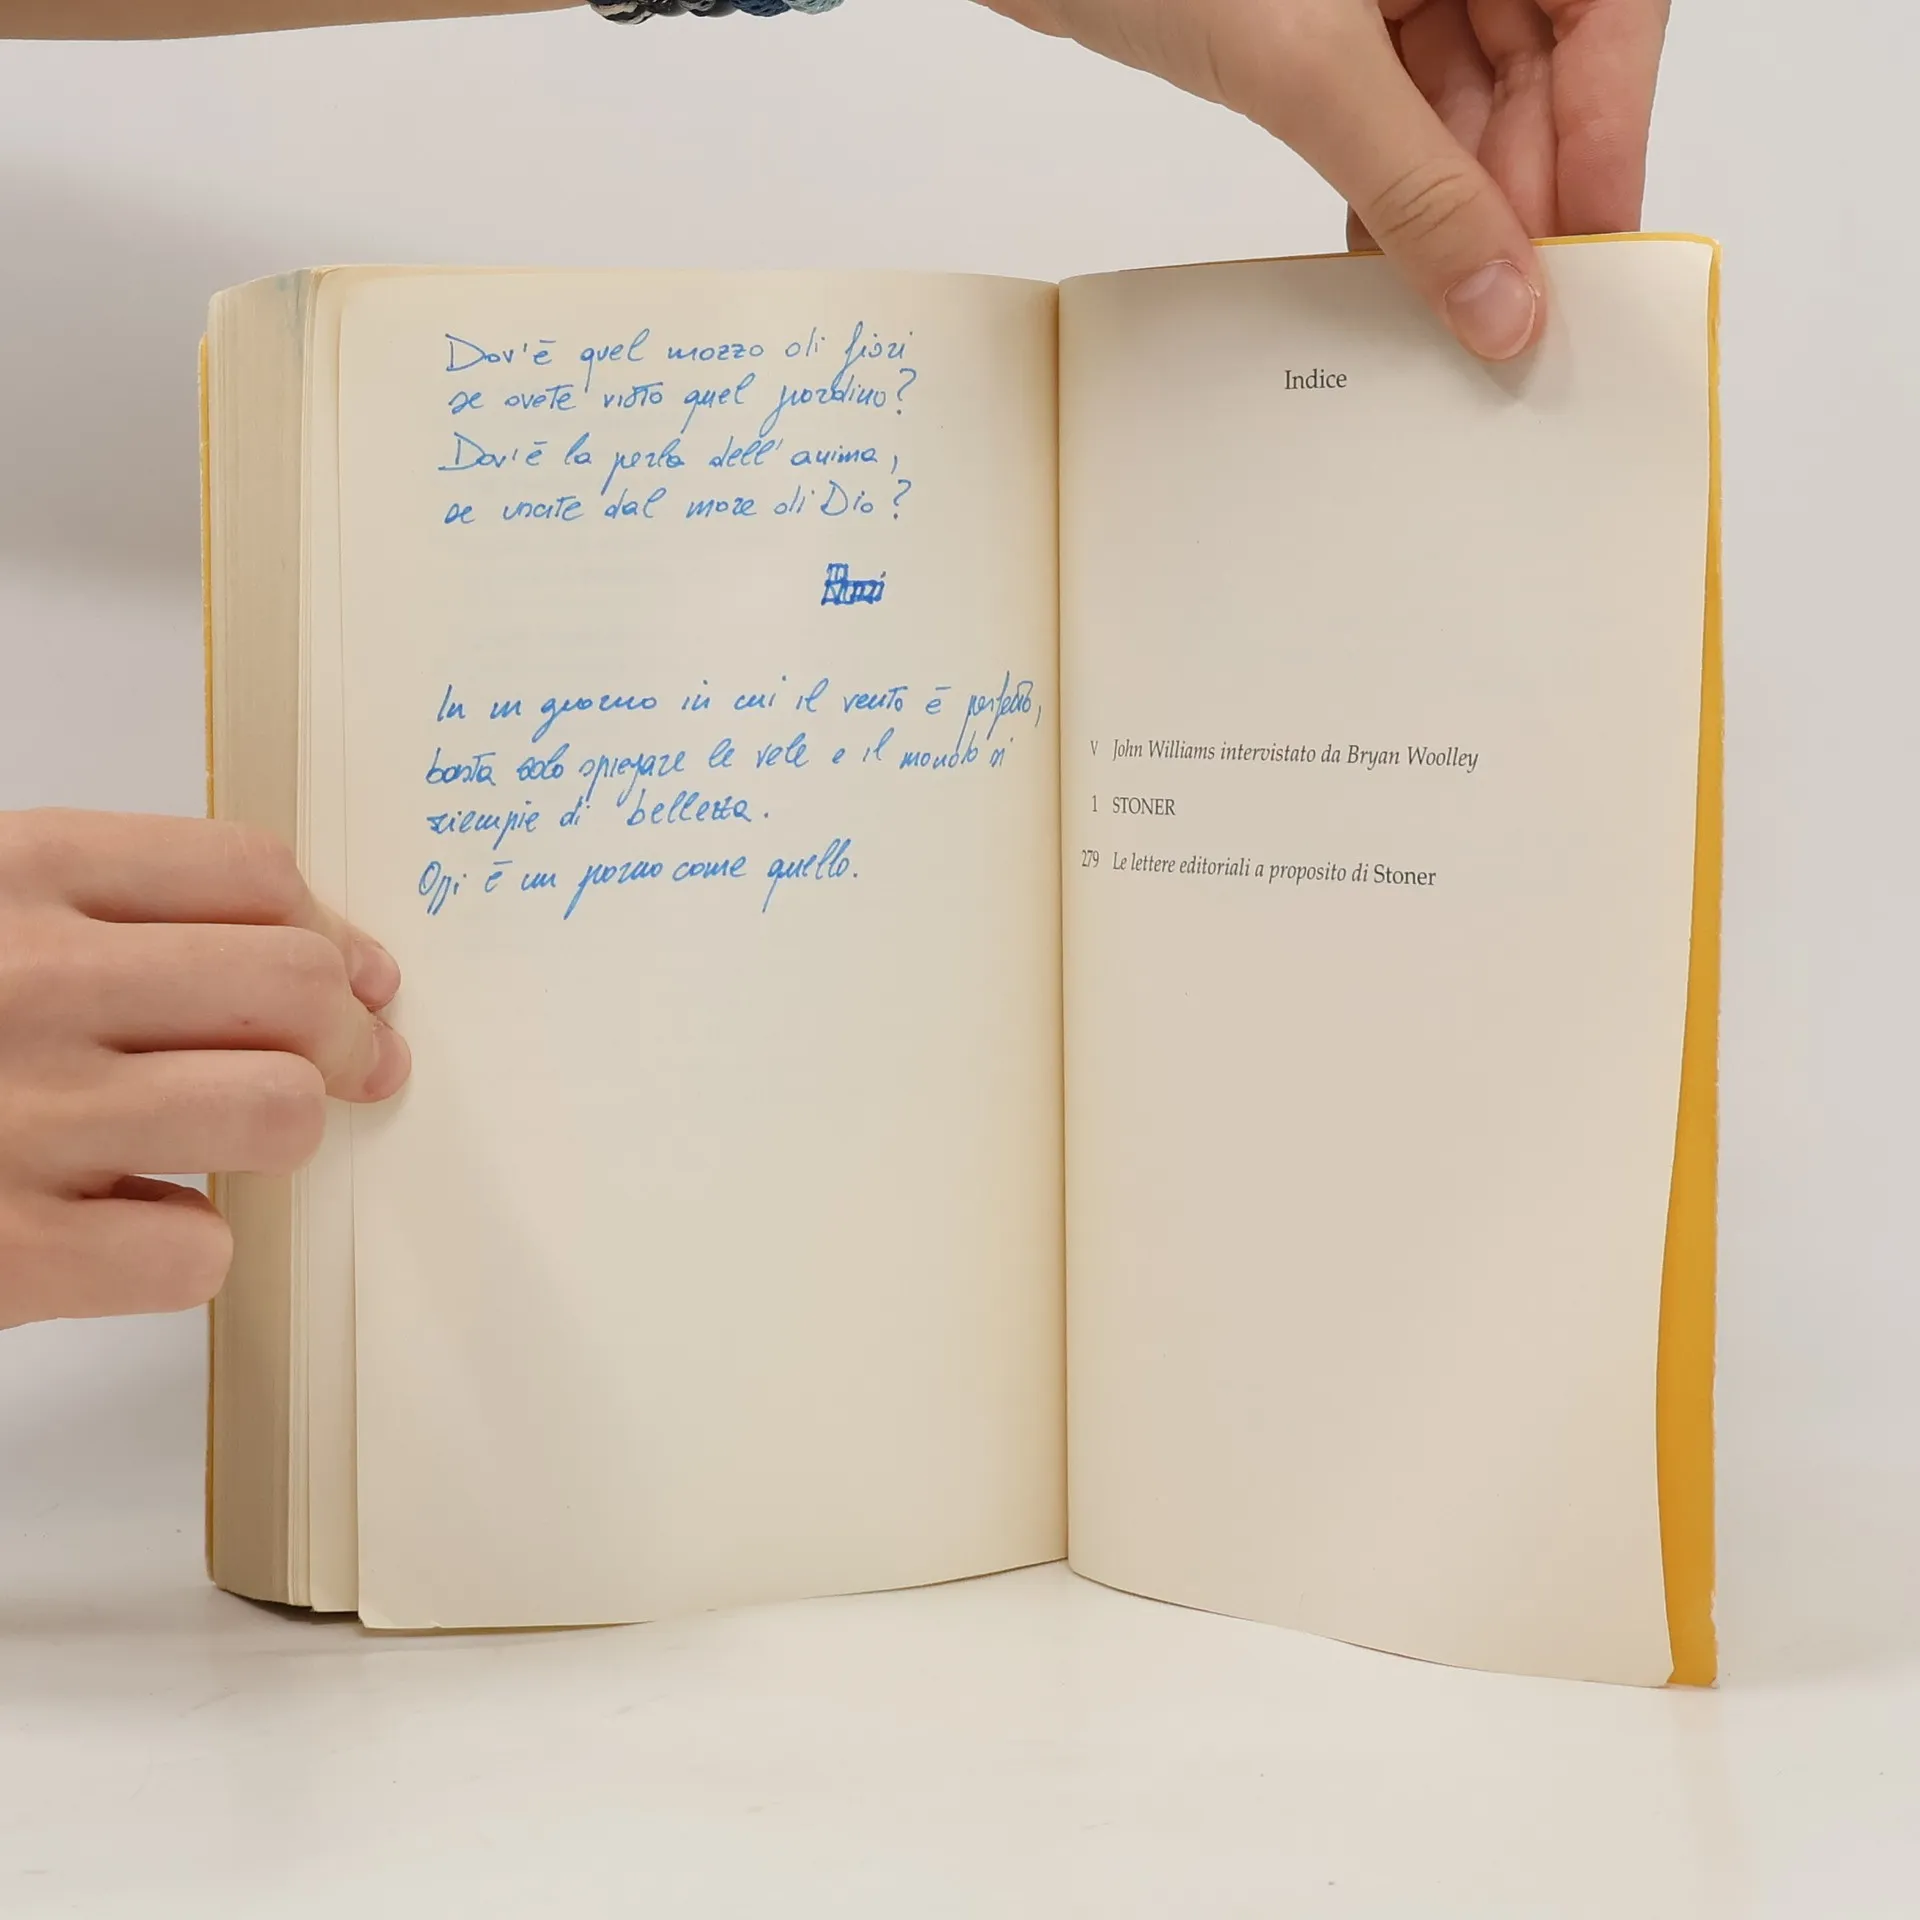 Dov'è quel mazzo di fiori
se avete visto quel giardino?
Dov'è la perla dell'anima,
se uscite dal mare di Dio?
In un giorno in cui il vento è perfetto,
basta solo spiegare le vele e il mondo si
riempie di bellezza.
Oggi è un giorno come quello.
Indice
V John Williams intervistato da Bryan Woolley
1 STONER
279 Le lettere editoriali a proposito di Stoner